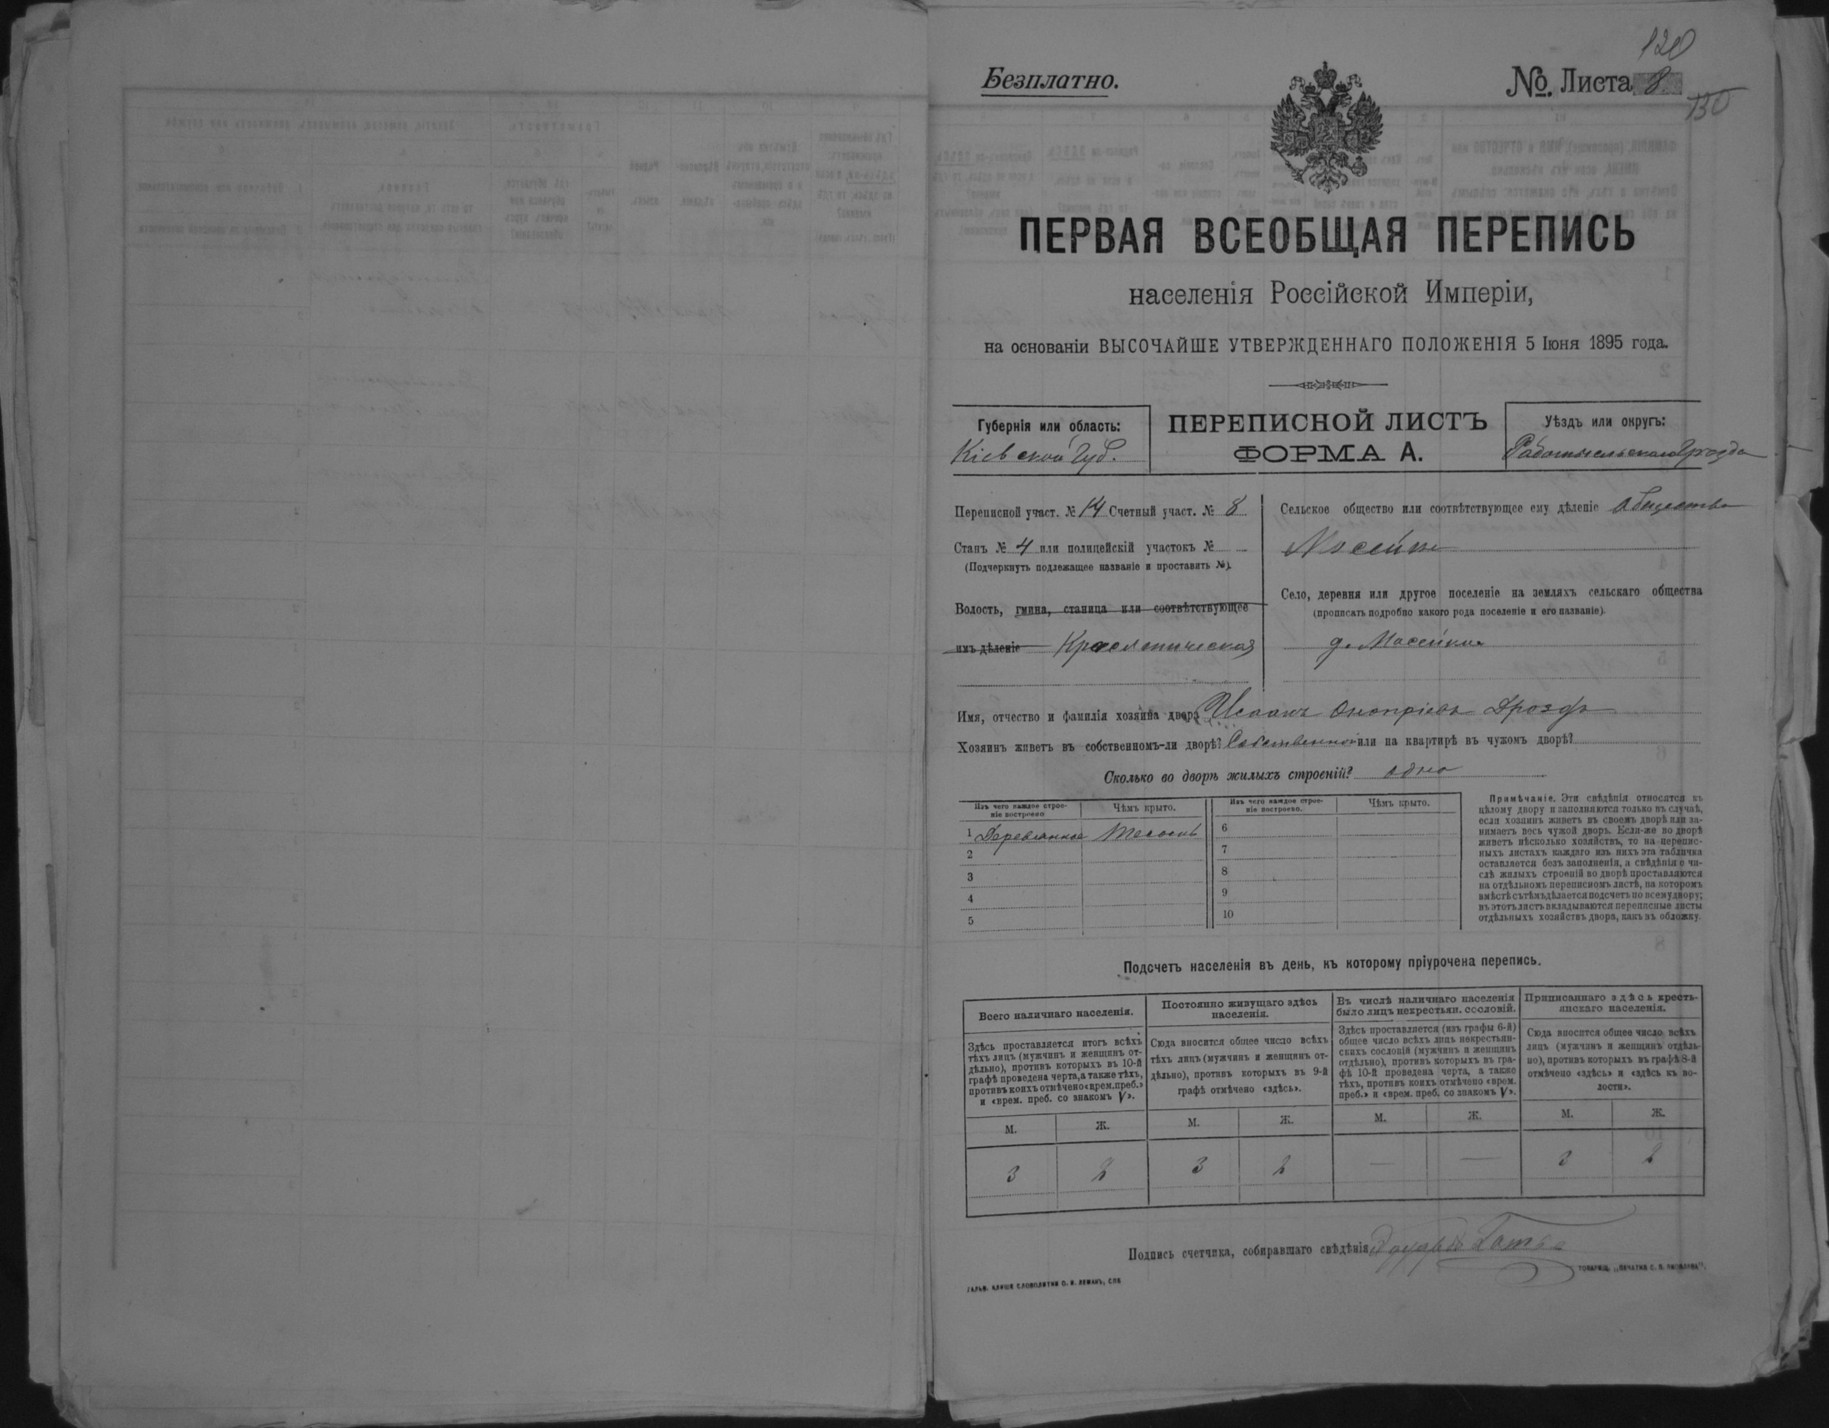 120
Безплатно.
№. Листа 8
130
ПЕРВАЯ ВСЕОБЩАЯ ПЕРЕПИСЬ
населенія Россійской Имперіи,
на основаніи ВЫСОЧАЙШЕ УТВЕРЖДЕННАГО ПОЛОЖЕНІЯ 5 Іюня 1895 года.
Губернія или область:
Кіевской Губ.
ПЕРЕПИСНОЙ ЛИСТЪ
ФОРМА А.
Уѣздъ или округъ:
Радомысльскаго уѣзда
Переписной участ. № 14 Счетный участ. № 8
Станъ № 4 или полицейскій участокъ № —
(Подчеркнуть подлежащее названіе и проставить №).
Волость, гмина, станица или соотвѣтствующее
имъ дѣленіе
Сельское общество или соотвѣтствующее ему дѣленіе общество
Масейки
Село, деревня или другое поселеніе на земляхъ сельскаго общества
(прописать подробно какого рода поселеніе и его названіе).
д. Масейки
Имя, отчество и фамилія хозяина двора Иванъ Онопріевъ Дроздъ
Хозяинъ живетъ въ собственномъ-ли дворѣ? Собственном или на квартирѣ въ чужомъ дворѣ?
Сколько во дворѣ жилыхъ строеній? одно
Изъ чего каждое строе-
ніе построено
Чѣмъ крыто.
1 Деревянное
2
3
4
5
Изъ чего каждое строе-
ніе построено.
Чѣмъ крыто.
6
7
8
9
10
Примѣчаніе. Эти свѣдѣнія относятся къ
цѣлому двору и заполняются только въ случаѣ,
если хозяинъ живетъ въ своемъ дворѣ или за-
нимаетъ весь чужой дворъ. Если-же во дворѣ
живетъ нѣсколько хозяйствъ, то на перепис-
ныхъ листахъ каждаго изъ нихъ эта табличка
оставляется безъ заполненія, а свѣдѣнія о чи-
слѣ жилыхъ строеній во дворѣ проставляются
на отдѣльномъ переписномъ листѣ, на которомъ
вмѣстѣ съ тѣмъ дѣлается подсчетъ по всему двору;
въ этотъ листъ вкладываются переписные листы
отдѣльныхъ хозяйствъ двора, какъ въ обложку.
Подсчетъ населенія въ день, къ которому пріурочена перепись.
Всего наличнаго населенія.
Здѣсь проставляется итогъ всѣхъ
тѣхъ лицъ (мужчинъ и женщинъ от-
дѣльно), противъ которыхъ въ 10-й
графѣ проведена черта, а также тѣхъ,
противъ коихъ отмѣчено «врем. преб.»
и «врем. преб. со знакомъ V».
М. Ж.
3 2
Постоянно живущаго здѣсь
населенія.
Сюда вносится общее число всѣхъ
тѣхъ лицъ (мужчинъ и женщинъ от-
дѣльно), противъ которыхъ въ 9-й
графѣ отмѣчено «здѣсь».
М. Ж.
3 2
Въ числѣ наличнаго населенія
было лицъ некрестьян. сословій.
Здѣсь проставляется (изъ графы 6-й)
общее число всѣхъ лицъ некрестьян-
скихъ сословій (мужчинъ и женщинъ
отдѣльно), противъ которыхъ въ гра-
фѣ 10-й проведена черта, а также
тѣхъ, противъ коихъ отмѣчено «врем.
преб.» и «врем. преб. со знакомъ V».
М. Ж.
— —
Приписаннаго здѣсь кресть-
янскаго населенія.
Сюда вносится общее число всѣхъ
лицъ (мужчинъ и женщинъ отдѣль-
но), противъ которыхъ въ графѣ 8-й
отмѣчено «здѣсь» и «здѣсь къ во-
лости».
М. Ж.
3 2
Подпись счетчика, собиравшаго свѣдѣнія